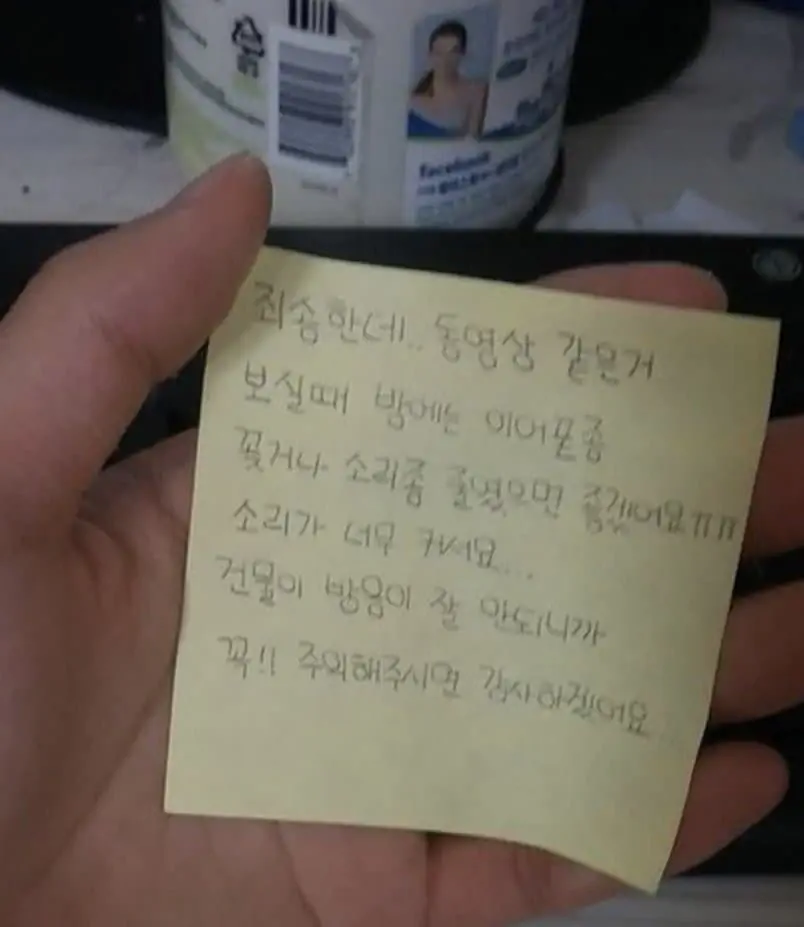 facebook
죄송한데.. 동영상 같은거
보실때 밤에는 이어폰좀
꽂거나 소리좀 줄였으면 좋겠어요ㅠㅠ
소리가 너무 커서요...
건물이 방음이 잘 안되니까
꼭!! 주의해주시면 감사하겠어요...